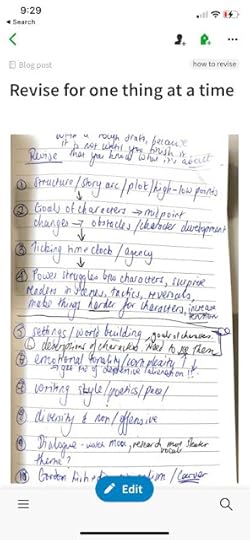 9:29
Search
Blog post
how to revise
Revise for one thing at a time
with a rough draft, because
it is not until you finish it
Revise that you know what it's about
① Structure/story arc/plot/high-low points
② Goals of characters → midpoint
changes → obstacles/character development
③ Ticking time clock/agency
④ Power struggles btw characters, surprise
readers in scenes, tactics, reversals,
make things harder for characters, increase
tension
⑤ settings/world building goals of characters
descriptions of characters need to
emotional tonality/complexity
get rid of
writing style/poetics/pace/
diversity & non/offensive
Dialogue - research must
vocab
theme?
⑩ Gordon Lish /Carver
Edit